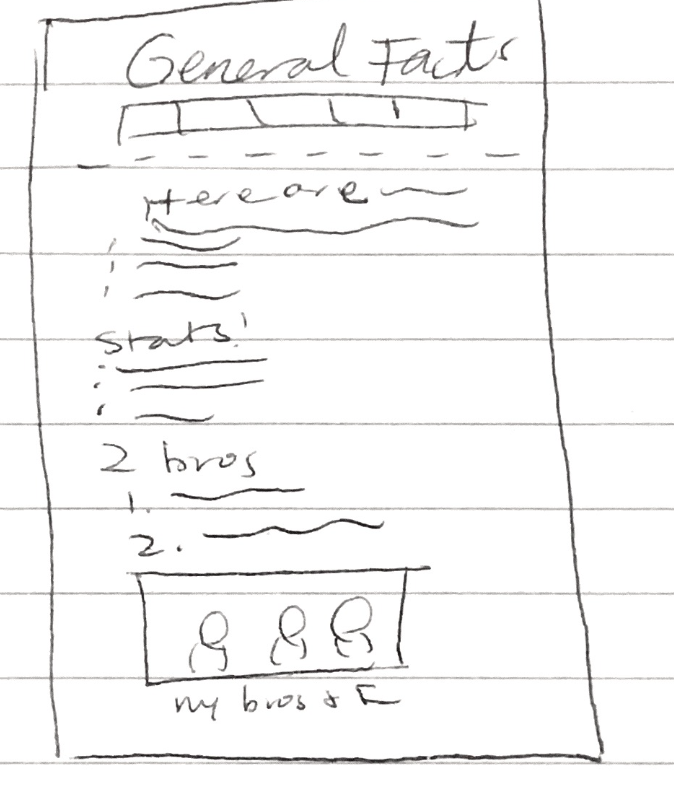 General Facts
Here are
Stats!
2 bros
1.
2.
my bros & I